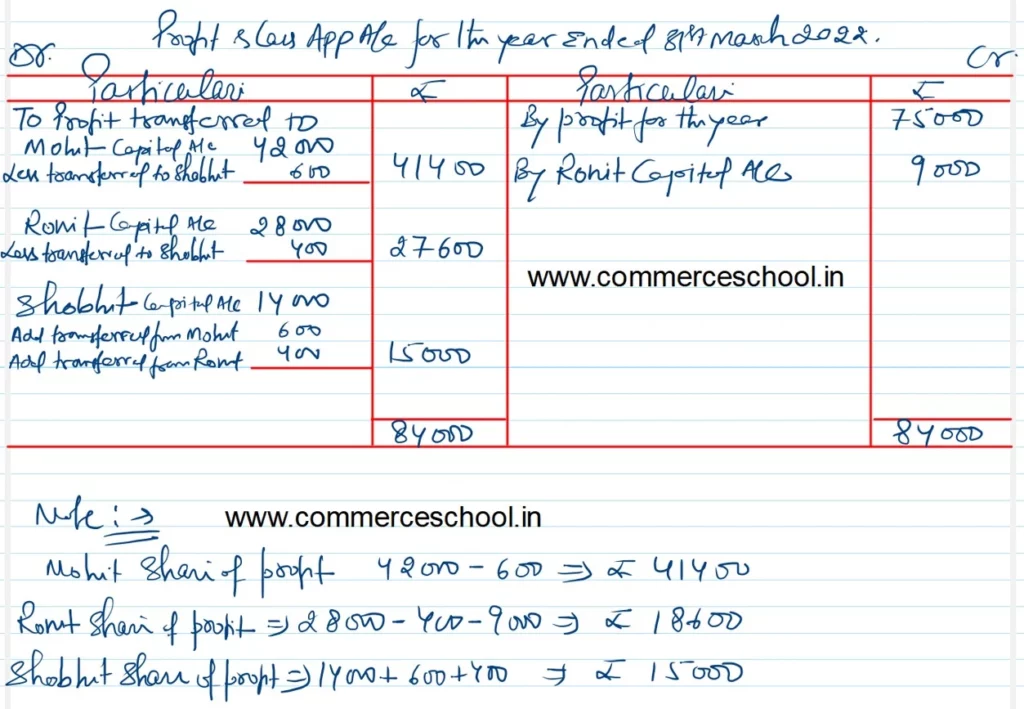 Profit & Loss App A/c for the year Ended 31st March 2022.
Dr. Cr.
Particulars ₹ Particulars ₹
To Profit transferred to By profit for the year 75000
Mohit Capital A/c 42000
Less transferred to Shobhit 600 41400 By Rohit Capital A/c 9000
Rohit Capital A/c 28000
Less transferred to Shobhit 400 27600
www.commerceschool.in
Shobhit Capital A/c 14000
Add transferred from Mohit 600
Add transferred from Rohit 400 15000
84000 84000
Note :→
www.commerceschool.in
Mohit Share of profit 42000 - 600 ⇒ ₹ 41400
Rohit Share of profit ⇒ 28000 - 400 - 9000 ⇒ ₹ 18600
Shobhit Share of profit ⇒ 14000 + 600 + 400 ⇒ ₹ 15000